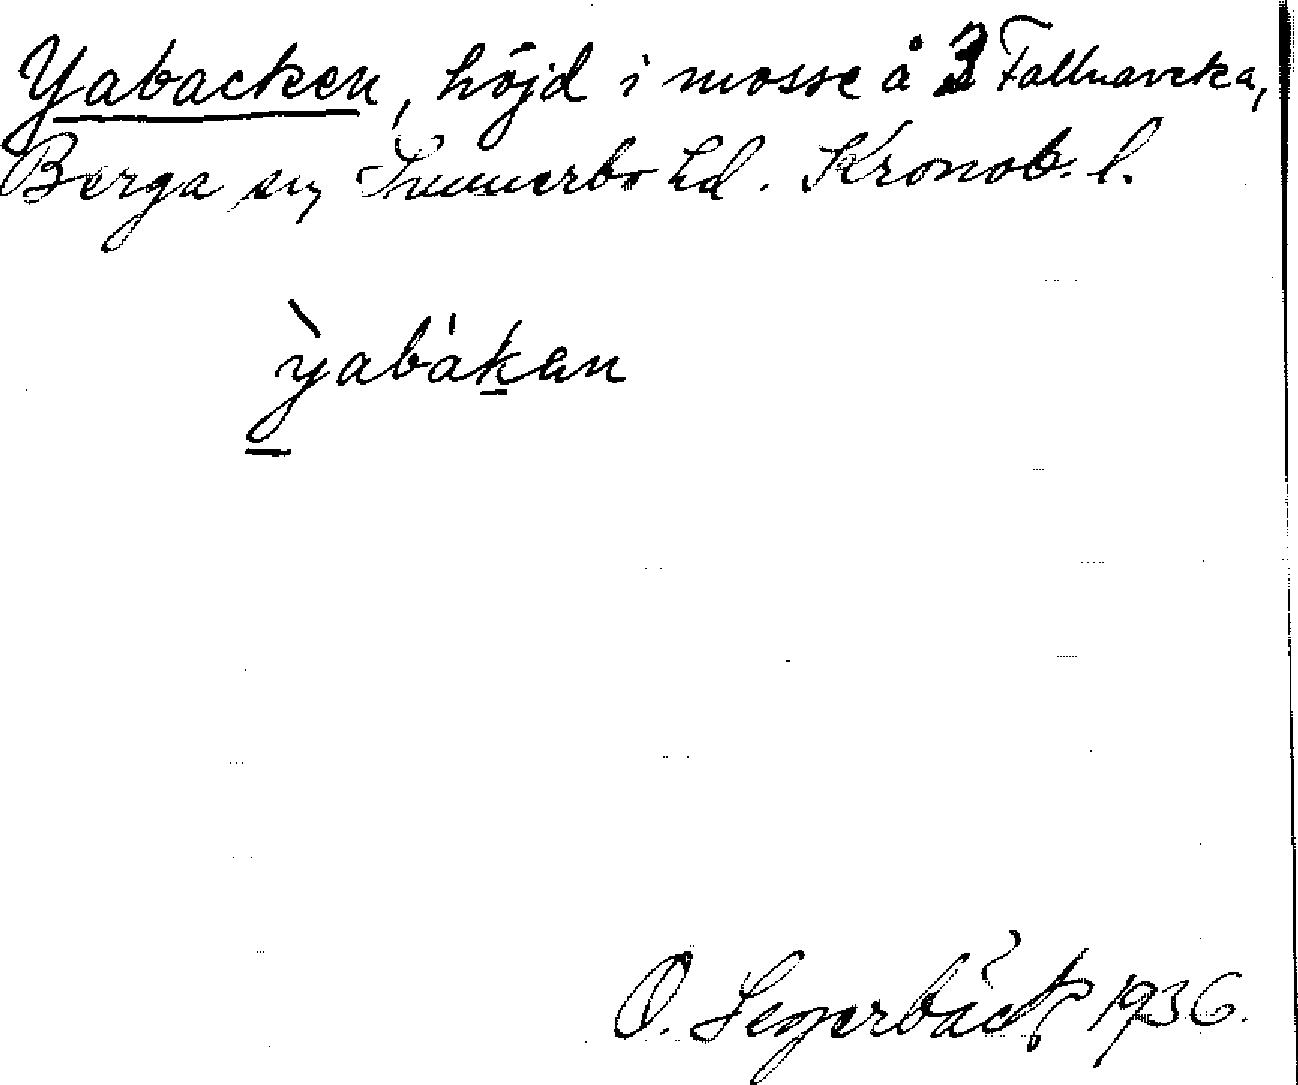 Yabacken, höjd i mosse å 3 Fallnaveka,
Berga sn, Sunnerbo hd. Kronob. l.
yabakan
O. Segerbäck 1936.